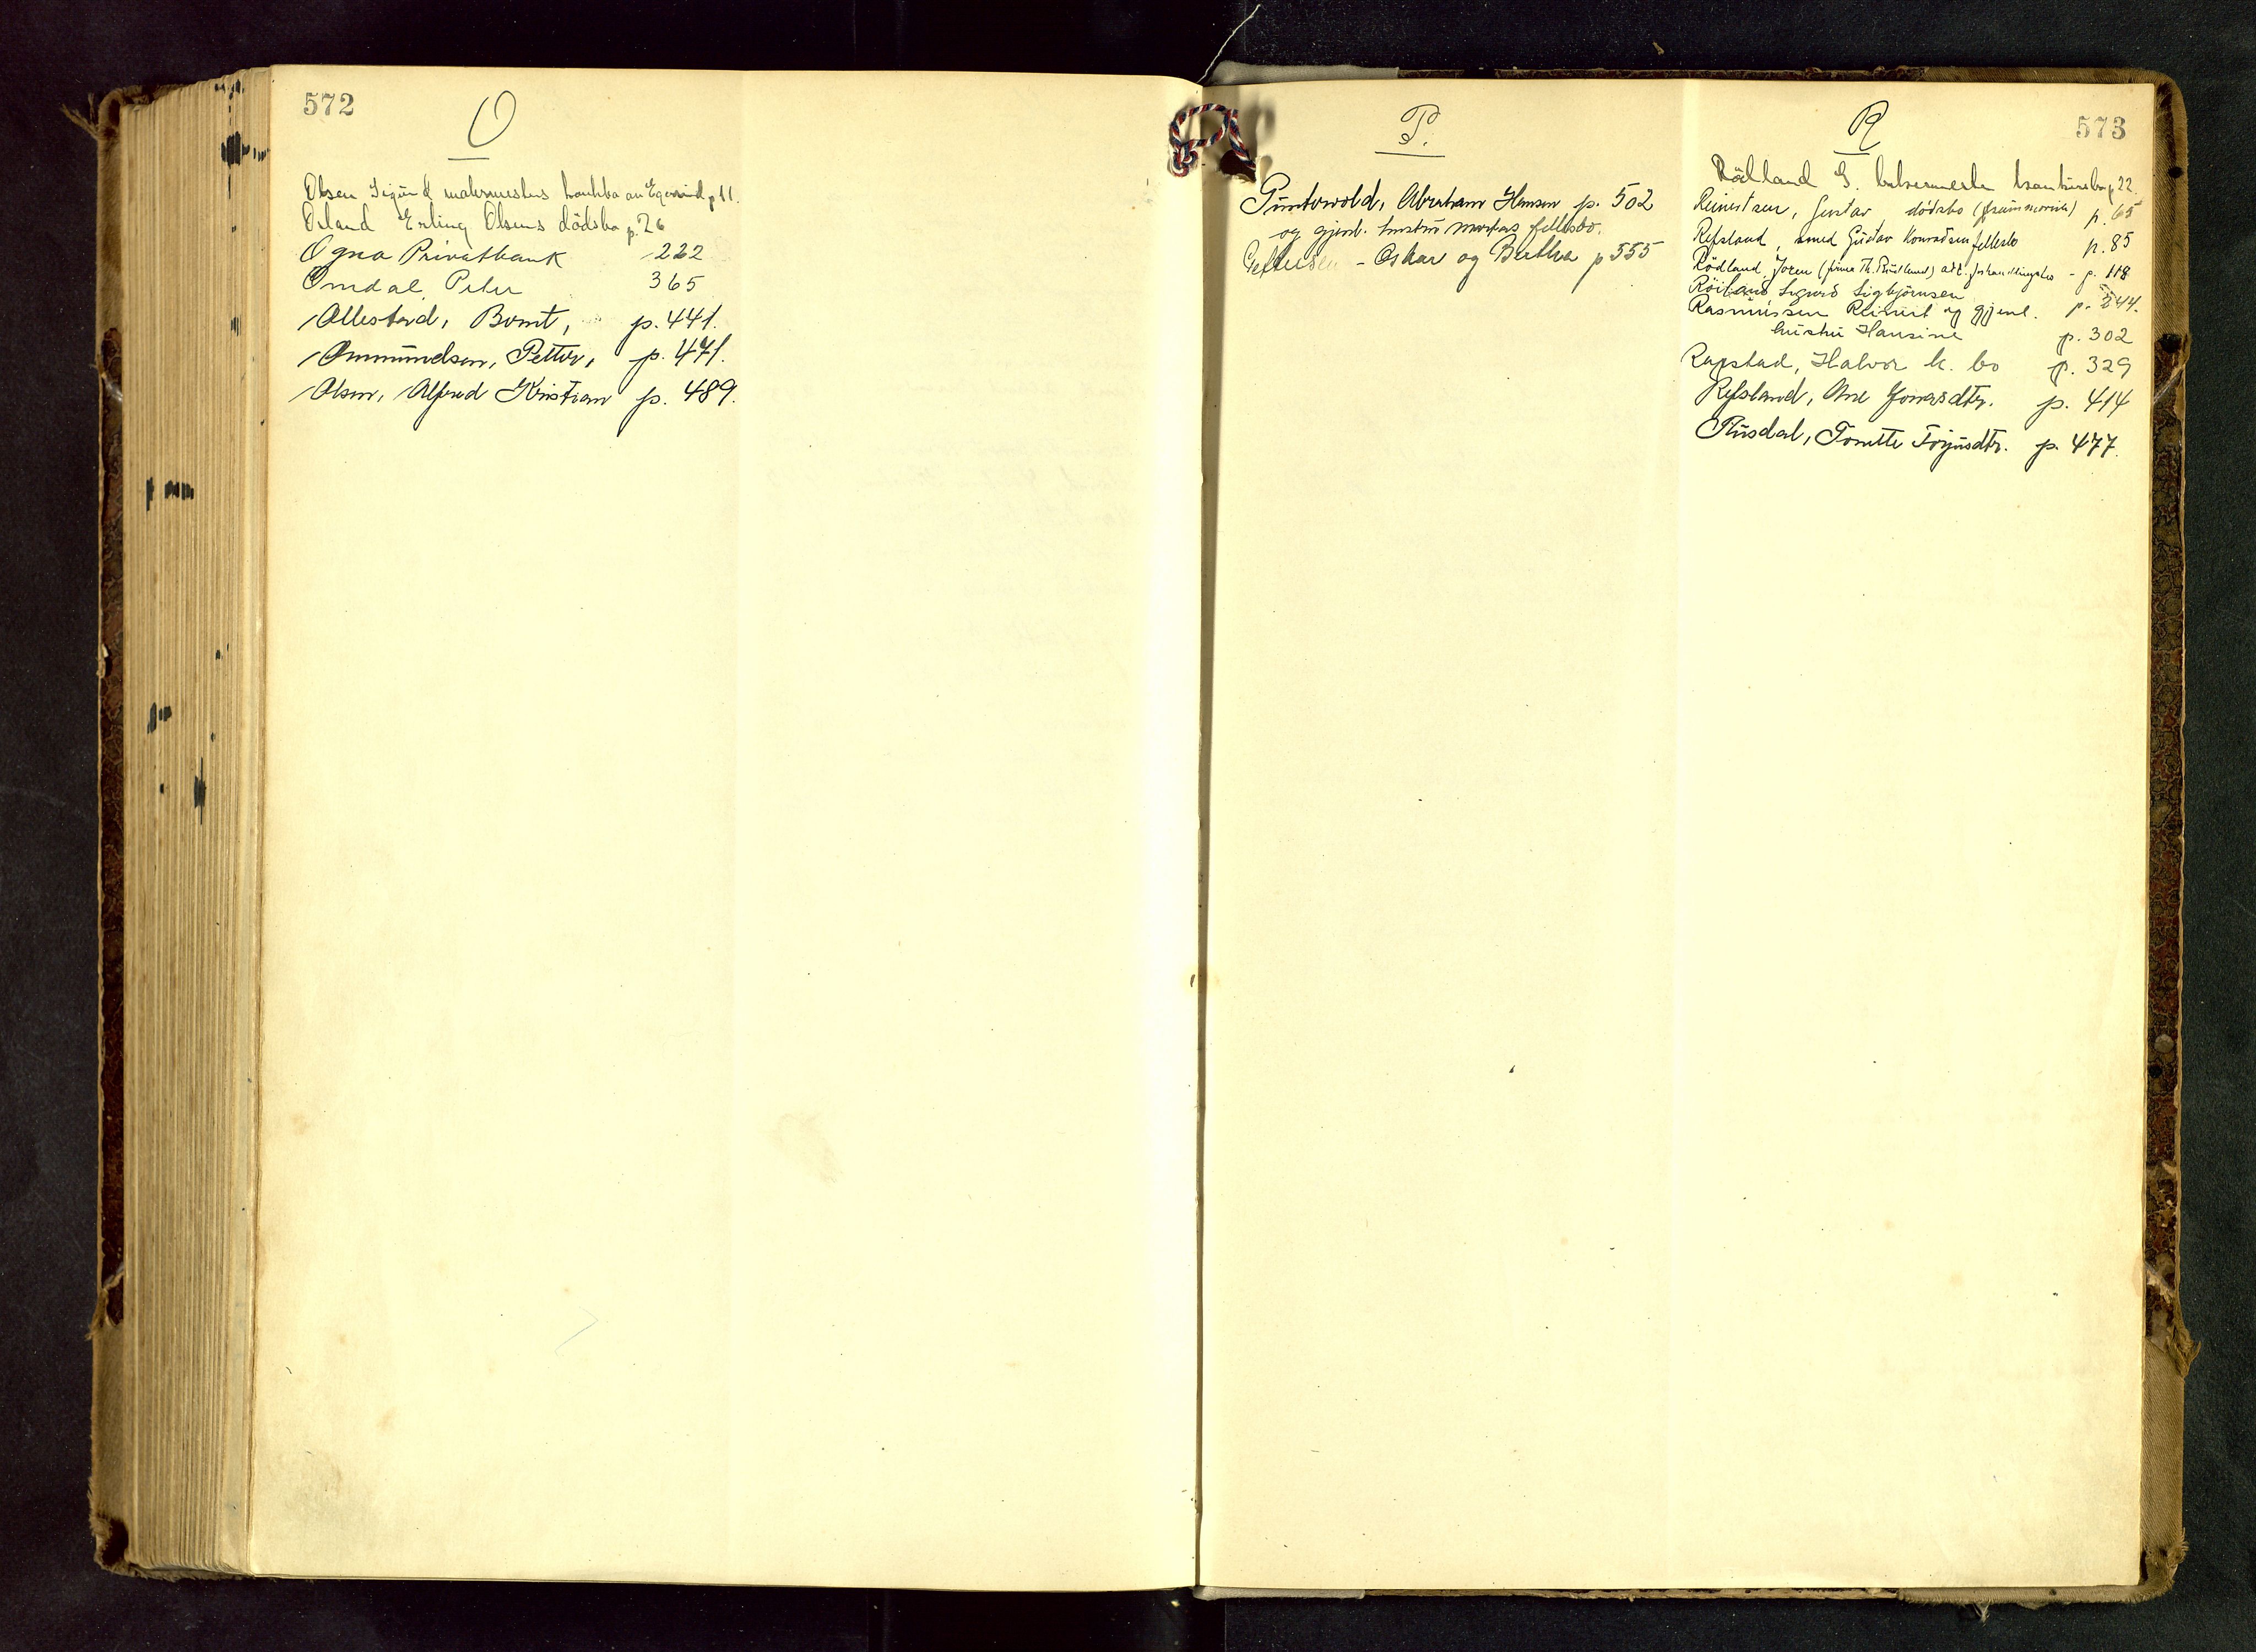 572
O
Olsen Sigurd malermesters konkbo av Egersund p 11.
Örland Erling Olsens dödsbo p. 26
Ogna Privatbank 222
Omdal, Peter 365
Ollestad, Bernt, p. 441.
Ommundsen, Petter, p. 471.
Olsen, Alfred Kristian p. 489.
P.
Puntervold, Abraham Hansen p. 502
og gjenl. hustru Marthas fellesbo.
Pettersen - Oskar og Bertha p 555
573
R
Rödland G. konkursbo p 22.
Reinertsen, Gustav, dödsbo p. 65
Refsland, Gustav Konradsen fellesbo p. 85
Rödland, (firma Th. Rödland) - p. 118
Sigurd Sigbjörnsen p. 244.
Rasmussen Reinert og gjenl.
hustru Hansine p. 302
Rapstad, Halvor k. bo p. 329
Refsland, Ane Jonasdtr. p. 414
Rusdal, Tonette p. 477.